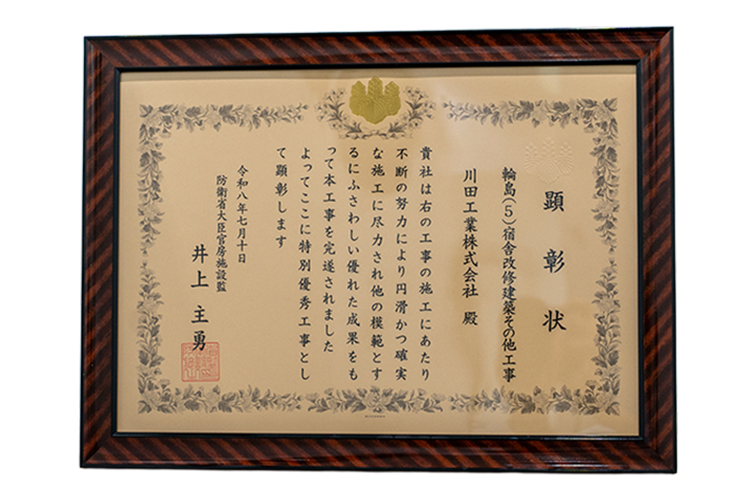 顕彰状
輪島(5)宿舎改修建築その他工事
川田工業株式会社 殿
貴社は右の工事の施工にあたり
不断の努力により円滑かつ確実
な施工に尽力され他の模範とす
るにふさわしい優れた成果をも
って本工事を完遂されました
よってここに特別優秀工事とし
て顕彰します
令和八年七月十日
防衛省大臣官房施設監
井上主勇